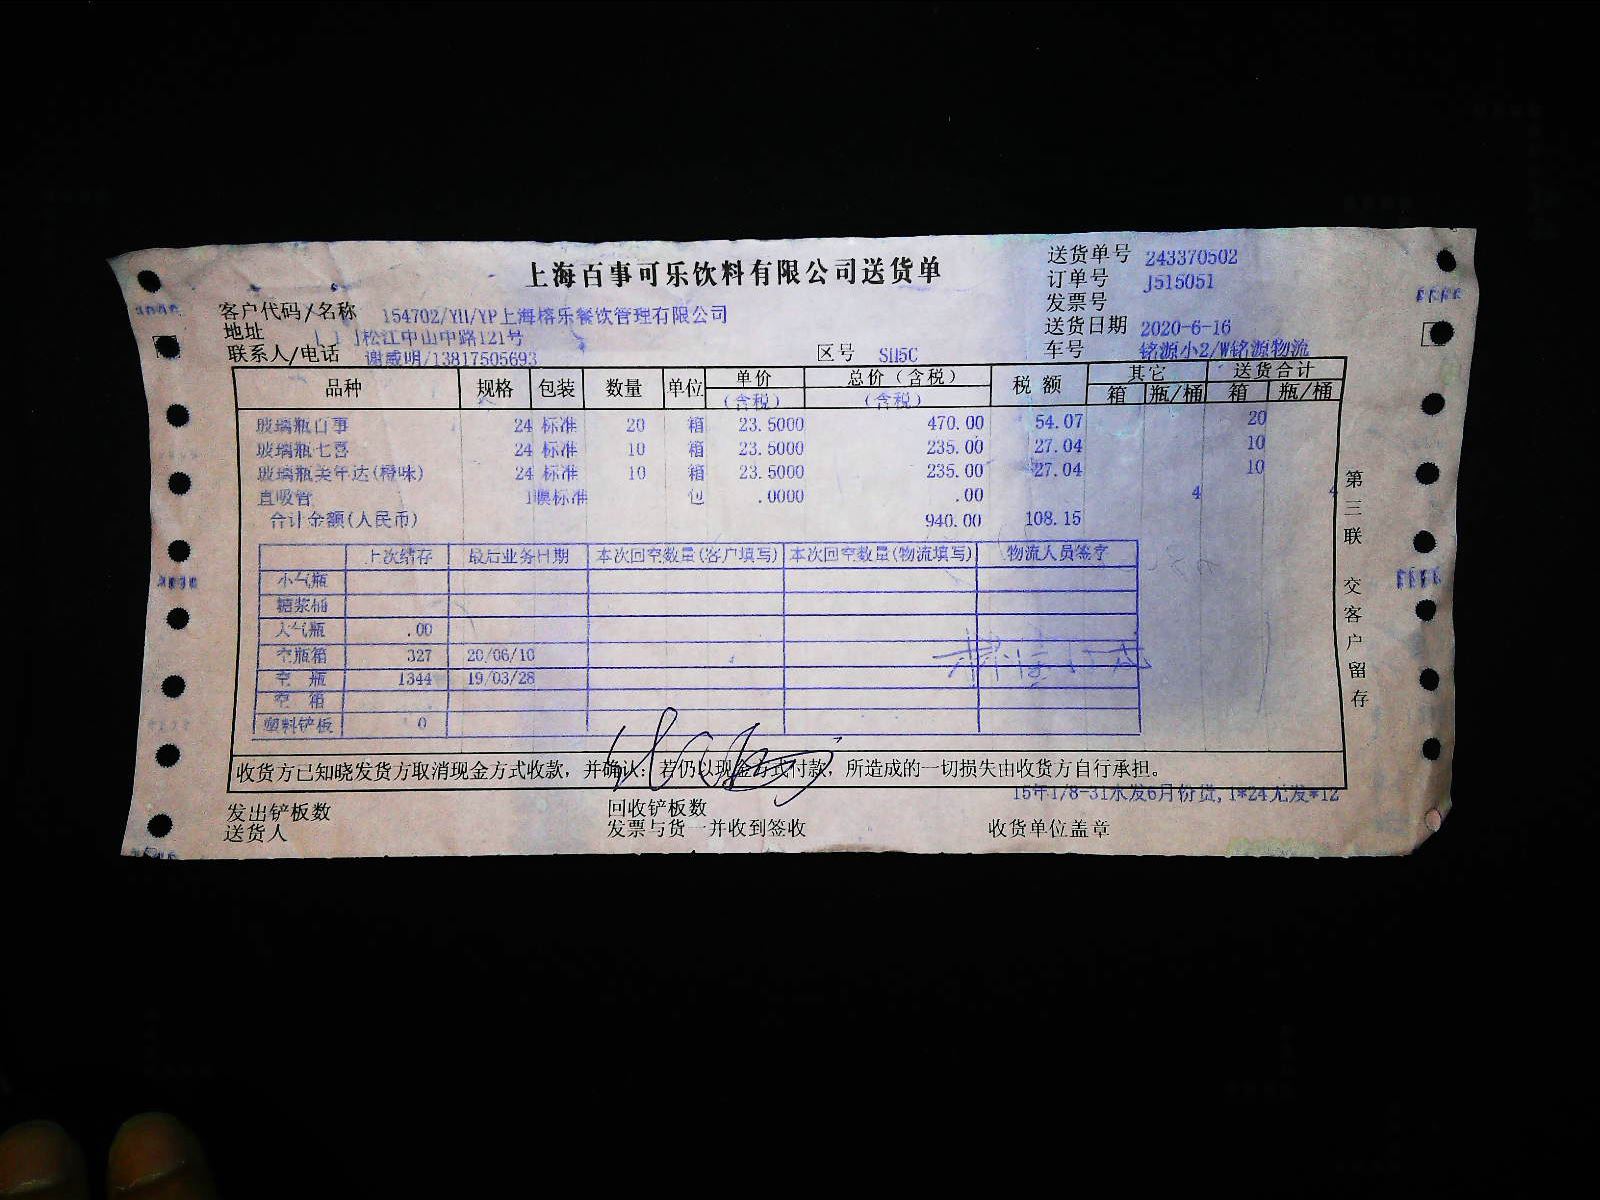 上海百事可乐饮料有限公司送货单
送货单号 243370502
订单号 J515051
发票号
客户代码/名称 154702/YH/YP上海榕乐餐饮管理有限公司
送货日期 2020-6-16
地址 [ ]松江中山中路121号
联系人/电话 谢威明/13817505693 区号 SH5C 车号 铭源小2/W铭源物流
品种 规格 包装 数量 单位 单价 (含税) 总价(含税) (含税) 税额 其它 箱 瓶/桶 送货合计 箱 瓶/桶
玻璃瓶百事 24 标准 20 箱 23.5000 470.00 54.07 20
玻璃瓶七喜 24 标准 10 箱 23.5000 235.00 27.04 10
玻璃瓶美年达(橙味) 24 标准 10 箱 23.5000 235.00 27.04 10
直吸管 1膜标准 包 .0000 .00 4 4
合计金额(人民币) 940.00 108.15
上次结存 最后业务日期 本次回空数量(客户填写) 本次回空数量(物流填写) 物流人员签字
小气瓶
糖浆桶
大气瓶 .00
空瓶箱 327 20/06/10
空 瓶 1344 19/03/28
空 箱
塑料铲板 0
第三联 交客户留存
收货方已知晓发货方取消现金方式收款，并确认：若仍以现金方式付款，所造成的一切损失由收货方自行承担。
15年1/8-31水发6月份货,1*24无发*12
发出铲板数 回收铲板数
送货人 发票与货一并收到签收 收货单位盖章